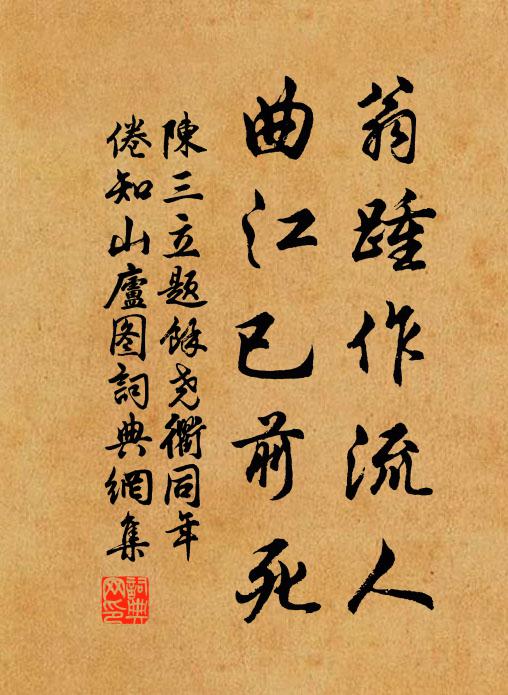 翁踵作流人
曲江已前死
陳三立題餘堯衢同年
倦知山廬图詞典網集
詞典网印